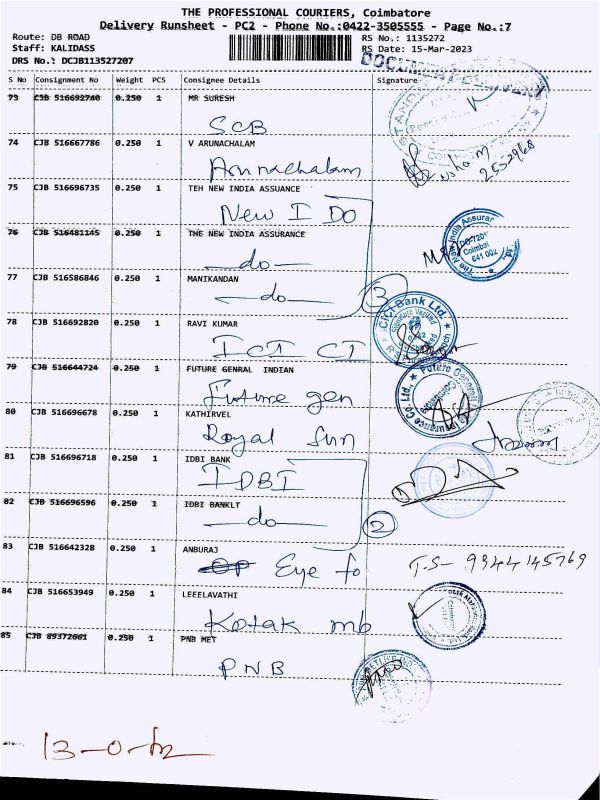 THE PROFESSIONAL COURIERS, Coimbatore
Delivery Runsheet - PC2 - Phone No.:0422-3505555 - Page No.:7
Route: DB ROAD
RS No.: 1135272
Staff: KALIDASS
RS Date: 15-Mar-2023
DRS No.: DCJB113527207
S No Consignment No Weight PCS Consignee Details Signature
73 CJB 516692740 0.250 1 MR SURESH
SCB
74 CJB 516667786 0.250 1 V ARUNACHALAM
Arunachalam
75 CJB 516696735 0.250 1 TEH NEW INDIA ASSUANCE
New I Do
76 CJB 516481145 0.250 1 THE NEW INDIA ASSURANCE
do
77 CJB 516586846 0.250 1 MANIKANDAN
do
3
78 CJB 516692820 0.250 1 RAVI KUMAR
ICI CI
ICICI Bank Ltd.
79 CJB 516644724 0.250 1 FUTURE GENRAL INDIAN
Future gen
80 CJB 516696678 0.250 1 KATHIRVEL
Royal Sun
81 CJB 516696718 0.250 1 IDBI BANK
IDBI
82 CJB 516696596 0.250 1 IDBI BANKLT
do
2
83 CJB 516642328 0.250 1 ANBURAJ
Eye fo T-S- 9944145769
84 CJB 516653949 0.250 1 LEEELAVATHI
Kotak mb
85 CJB 89372661 0.250 1 PNB MET
PNB